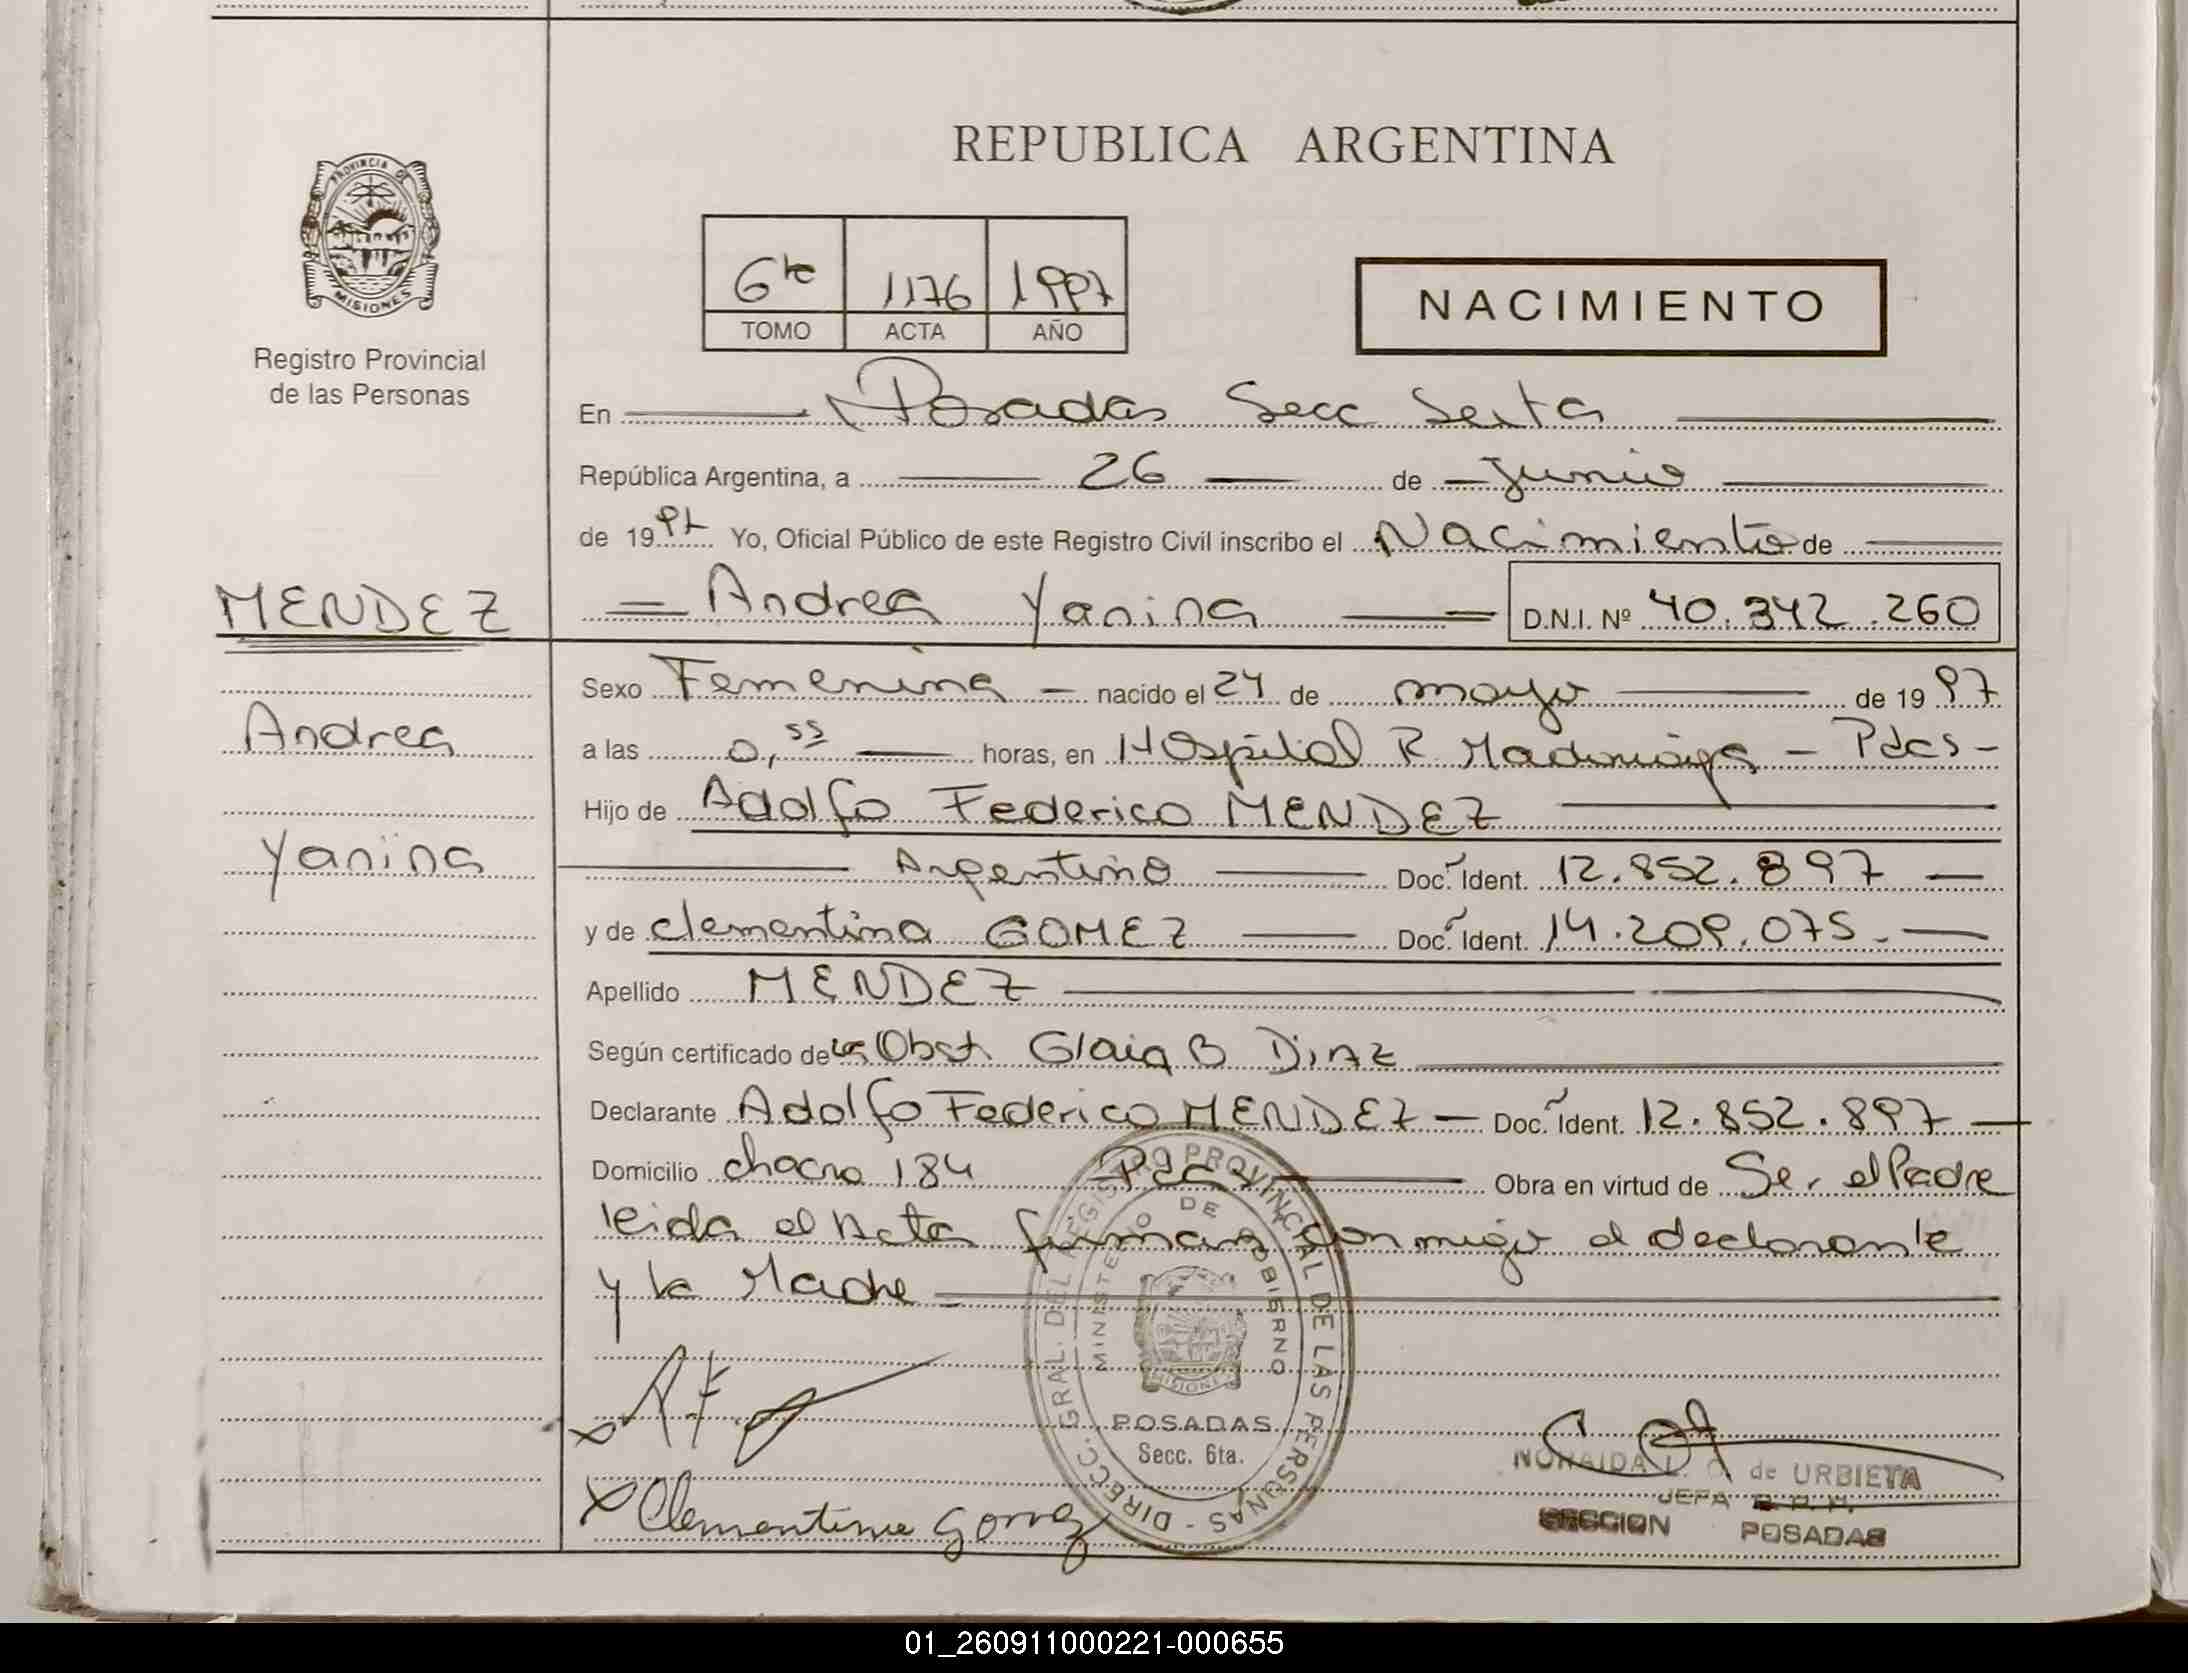 REPUBLICA ARGENTINA
PROVINCIA DE
MISIONES
Registro Provincial
de las Personas
6ta 1176 1997
TOMO ACTA AÑO
NACIMIENTO
En Posadas Secc Sexta
República Argentina, a 26 de Junio
de 1997 Yo, Oficial Público de este Registro Civil inscribo el Nacimiento de
MENDEZ
Andrea Yanina D.N.I. Nº 40.342.260
Sexo Femenina nacido el 24 de mayo de 1997
Andrea
a las 0,55 horas, en Hospital R Madariaga - Pdas -
Hijo de Adolfo Federico MENDEZ
Yanina
Argentino Doc. Ident. 12.852.897
y de Clementina GOMEZ Doc. Ident. 14.209.075.-
Apellido MENDEZ
Según certificado de la Obst B DIAZ
Declarante Adolfo Federico MENDEZ - Doc. Ident. 12.852.897
Domicilio chacra 184 Obra en virtud de Ser el Padre
leida el Acta firman conmigo el declarante
y la Madre
DIRECC. GRAL. DEL REGISTRO PROVINCIAL DE LAS PERSONAS -
MINISTERIO DE GOBIERNO
MISIONES
POSADAS
Secc. 6ta.
Clementina Gomez
NORAIDA L. de URBIETA
JEFA
SECCION POSADAS
01_260911000221-000655